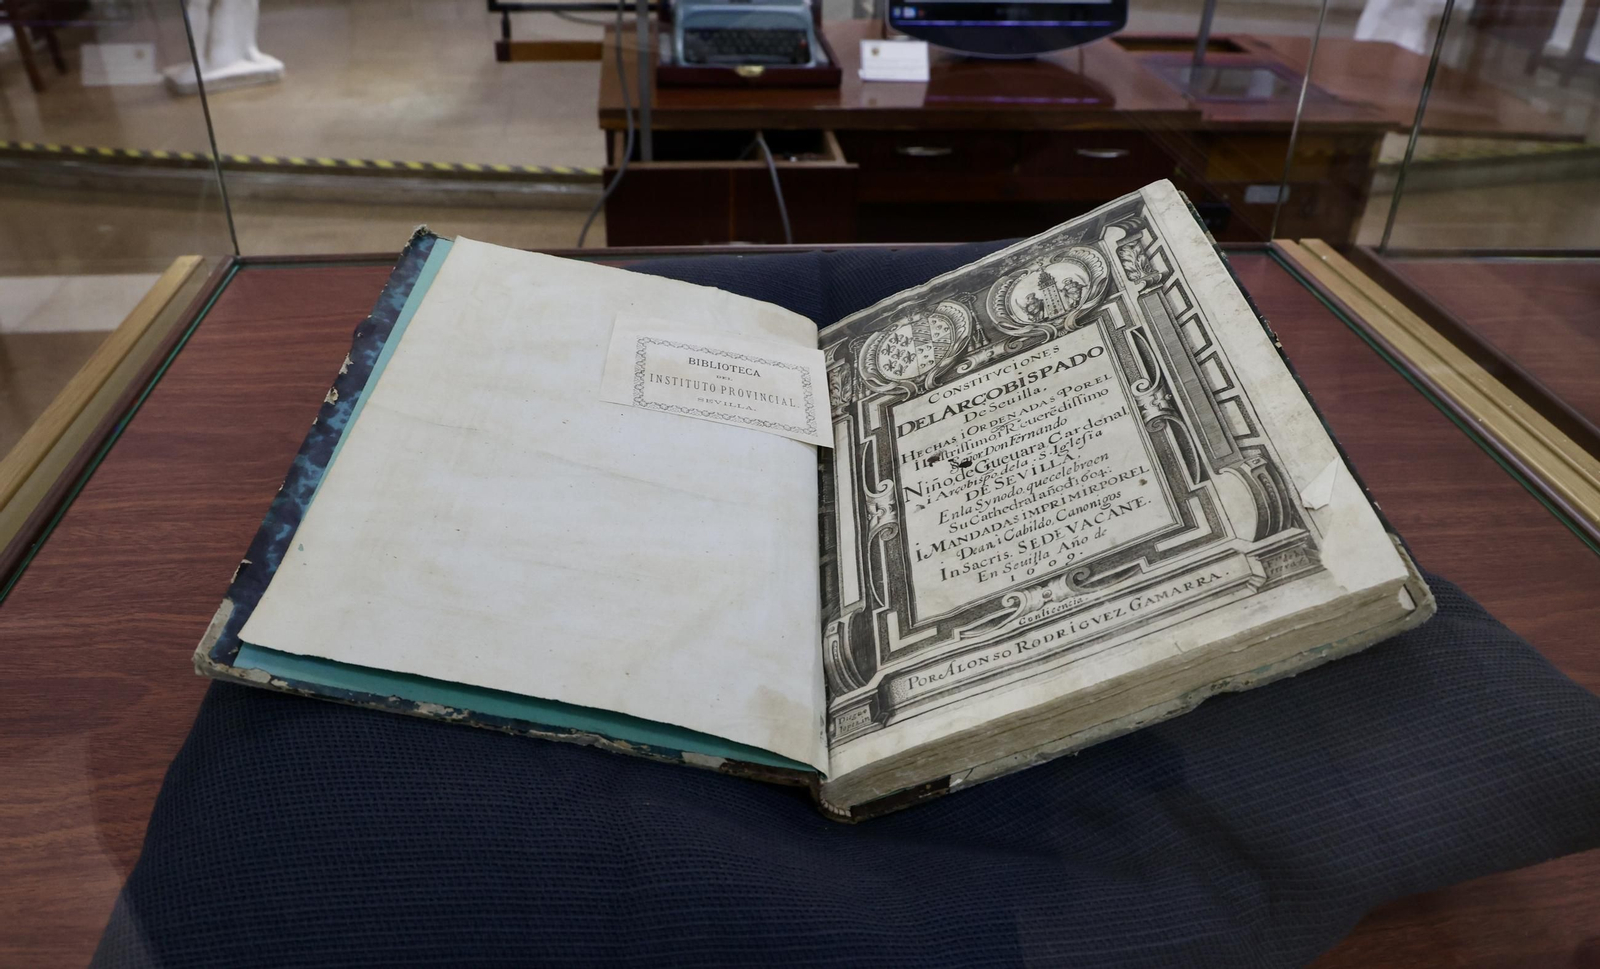 BIBLIOTECA
DEL
INSTITUTO PROVINCIAL
SEVILLA.
CONSTITVCIONES
DEL ARÇOBISPADO
De Seuilla.
HECHAS i ORDENADAS POR EL
Illustrissimo i Reuerēdissimo
Señor Don Fernando
Niño de Gueuara Cardenal
i Arçobispo de la S. Iglesia
DE SEVILLA.
En la Synodo que celebro en
Su Cathedral año d 1604.
I MANDADAS IMPRIMIR POR EL
Dean, i Cabildo, Canonigos
In Sacris. SEDE VACANE.
En Seuilla Año de
1609.
Con licencia.
POR ALONSO RODRIGVEZ GAMARRA.